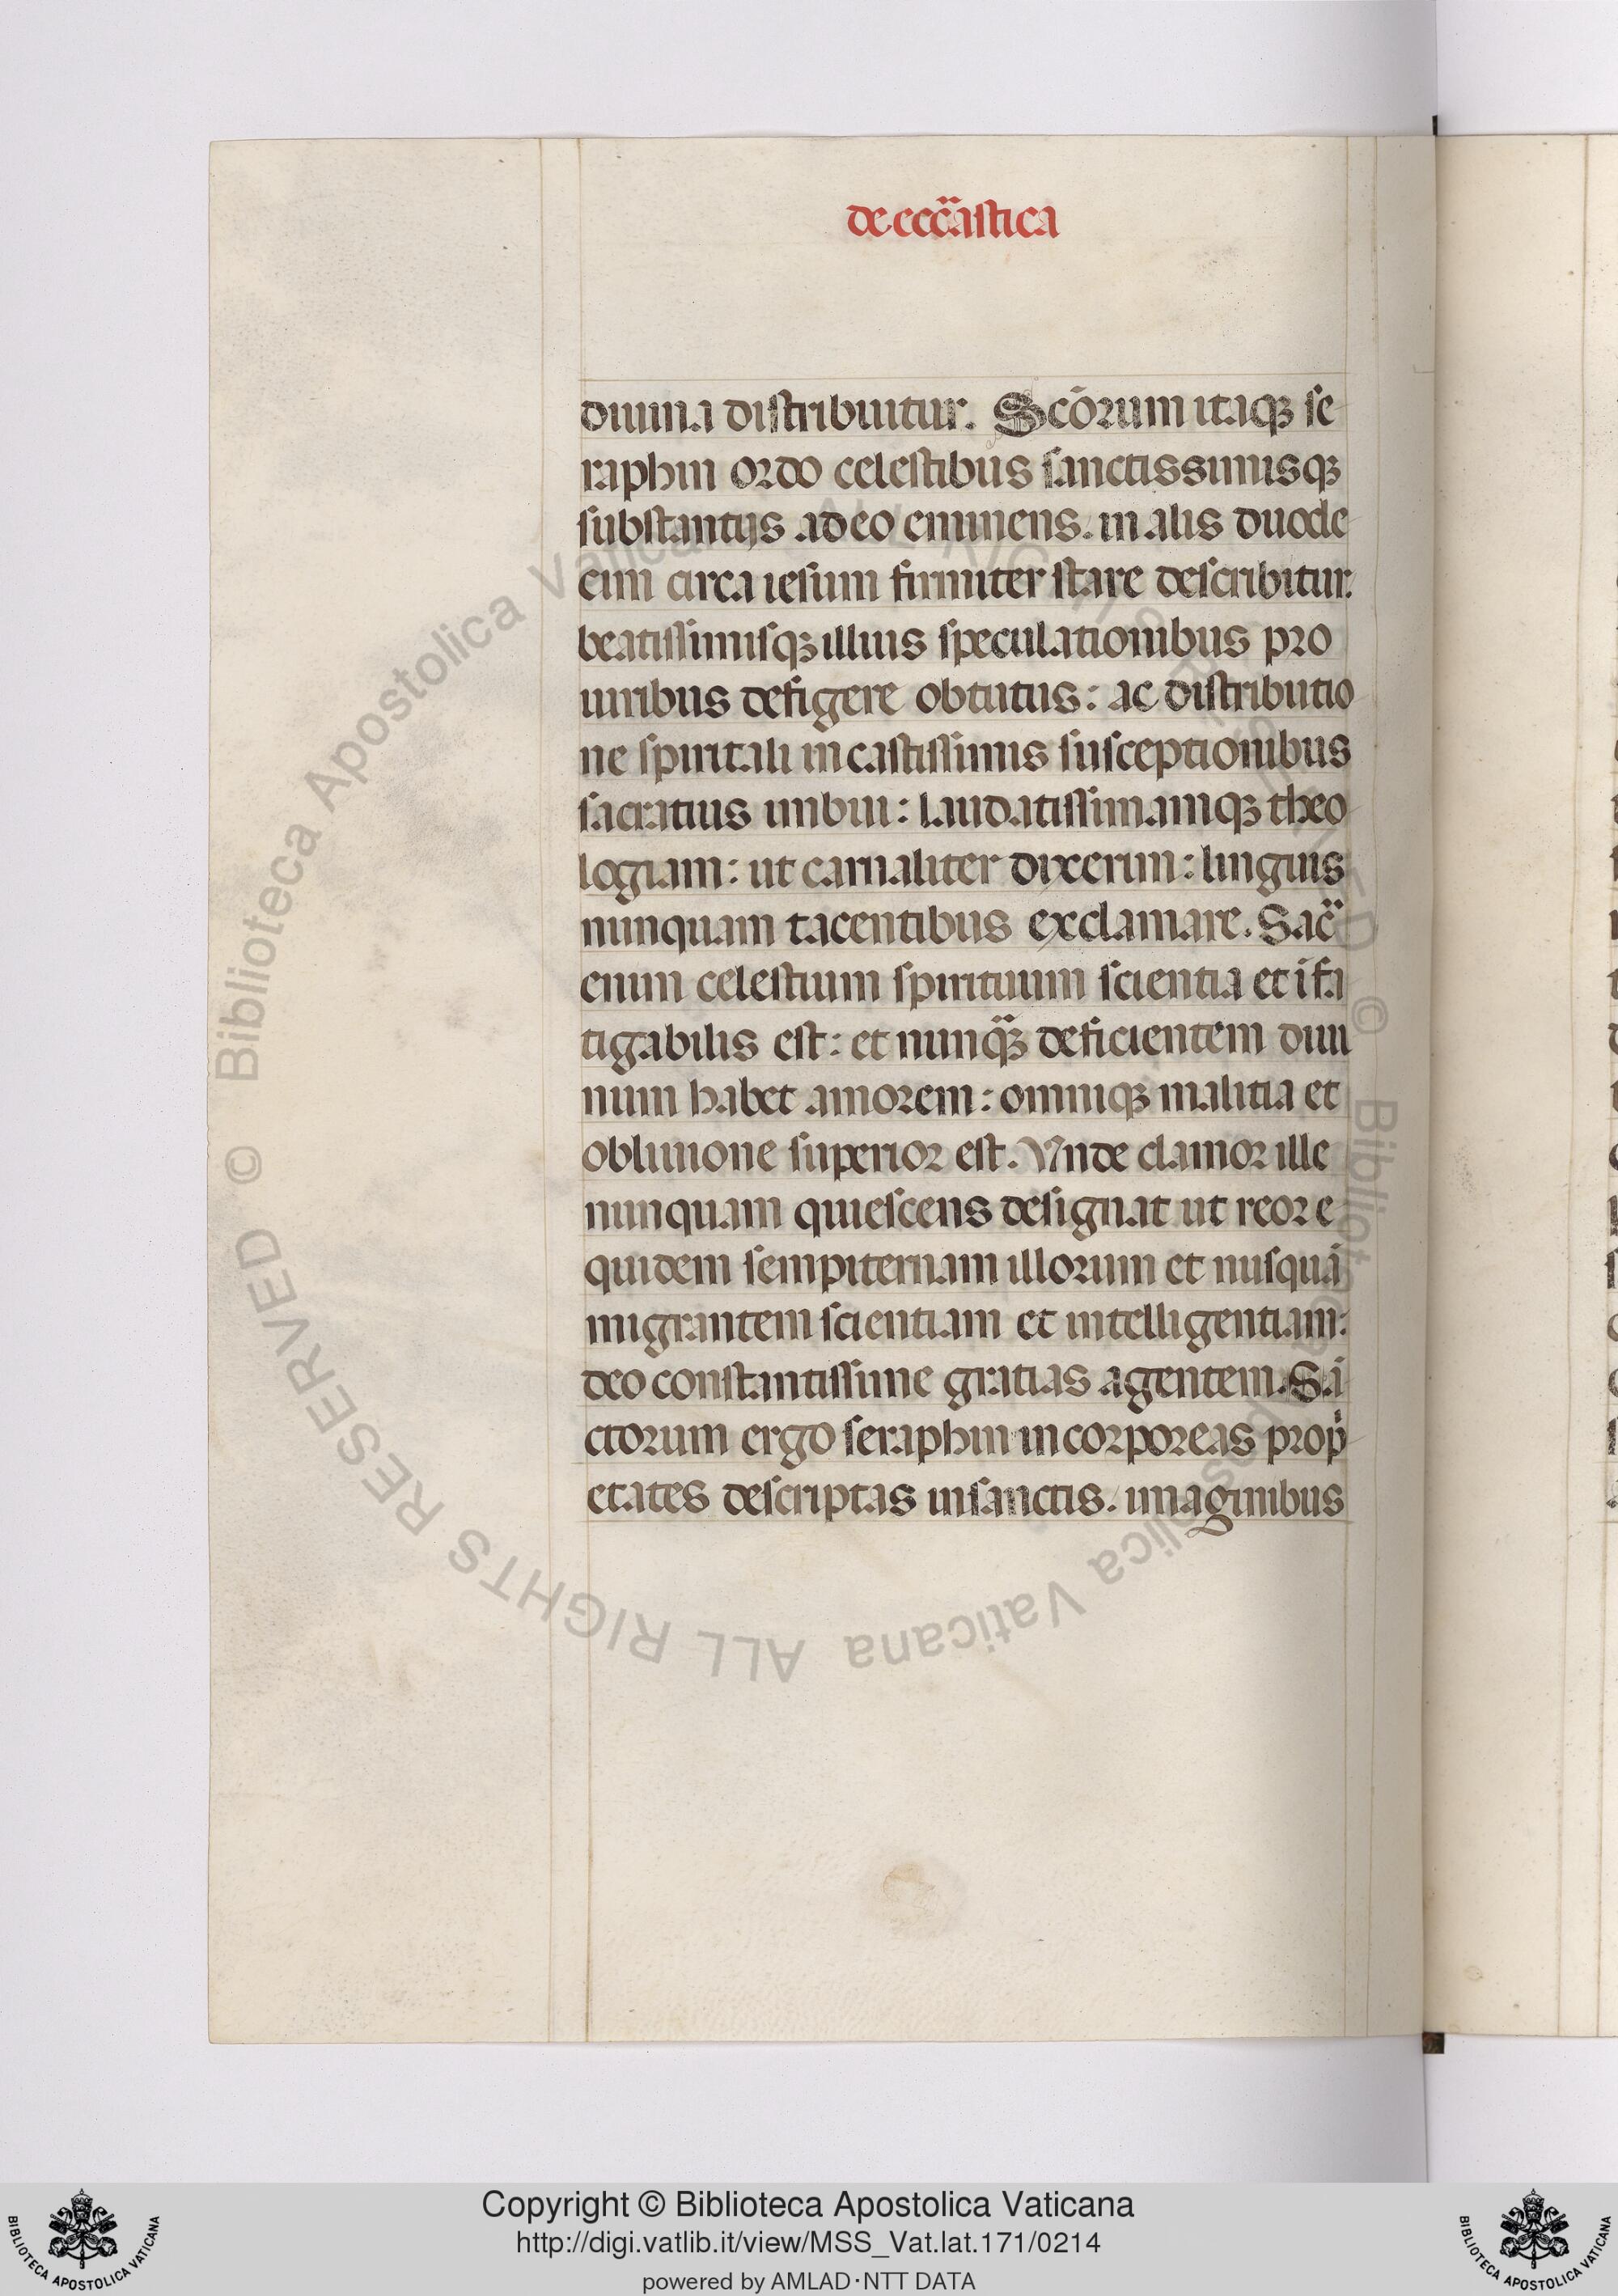 de eccãstica
diuina distribuitur. Scõrum itaqꝫ se
raphin ordo celestibus sanctissimisqꝫ
substantijs adeo eminens. in alis duode
cim circa iesum firmiter stare describitur.
beatissimisqꝫ illius speculationibus pro
uiribus defigere obtutus: ac distributio
ne spiritali in castissimis susceptionibus
sacratius imbui: laudatissimamqꝫ theo
logiam: ut carnaliter dixerim: linguis
nunquam tacentibus exclamare. Sac̃
enim celestium spirituum scientia et ĩfa
tigabilis est: et nunqꝫ̃ deficientem diui
num habet amorem: omniqꝫ malitia et
obliuione superior est. Vnde clamor ille
nunquam quiescens designat ut reor e
quidem sempiternam illorum et nusquã
migrantem scientiam et intelligentiam:
deo constantissime gratias agentem. Sã
ctorum ergo seraphin incorporeas prop̍
etates descriptas in sanctis. imaginibus
Copyright © Biblioteca Apostolica Vaticana
http://digi.vatlib.it/view/MSS_Vat.lat.171/0214
powered by AMLAD·NTT DATA
BIBLIOTECA APOSTOLICA VATICANA
BIBLIOTECA APOSTOLICA VATICANA
© Biblioteca Apostolica Vaticana ALL RIGHTS RESERVED
© Biblioteca Apostolica Vaticana ALL RIGHTS RESERVED